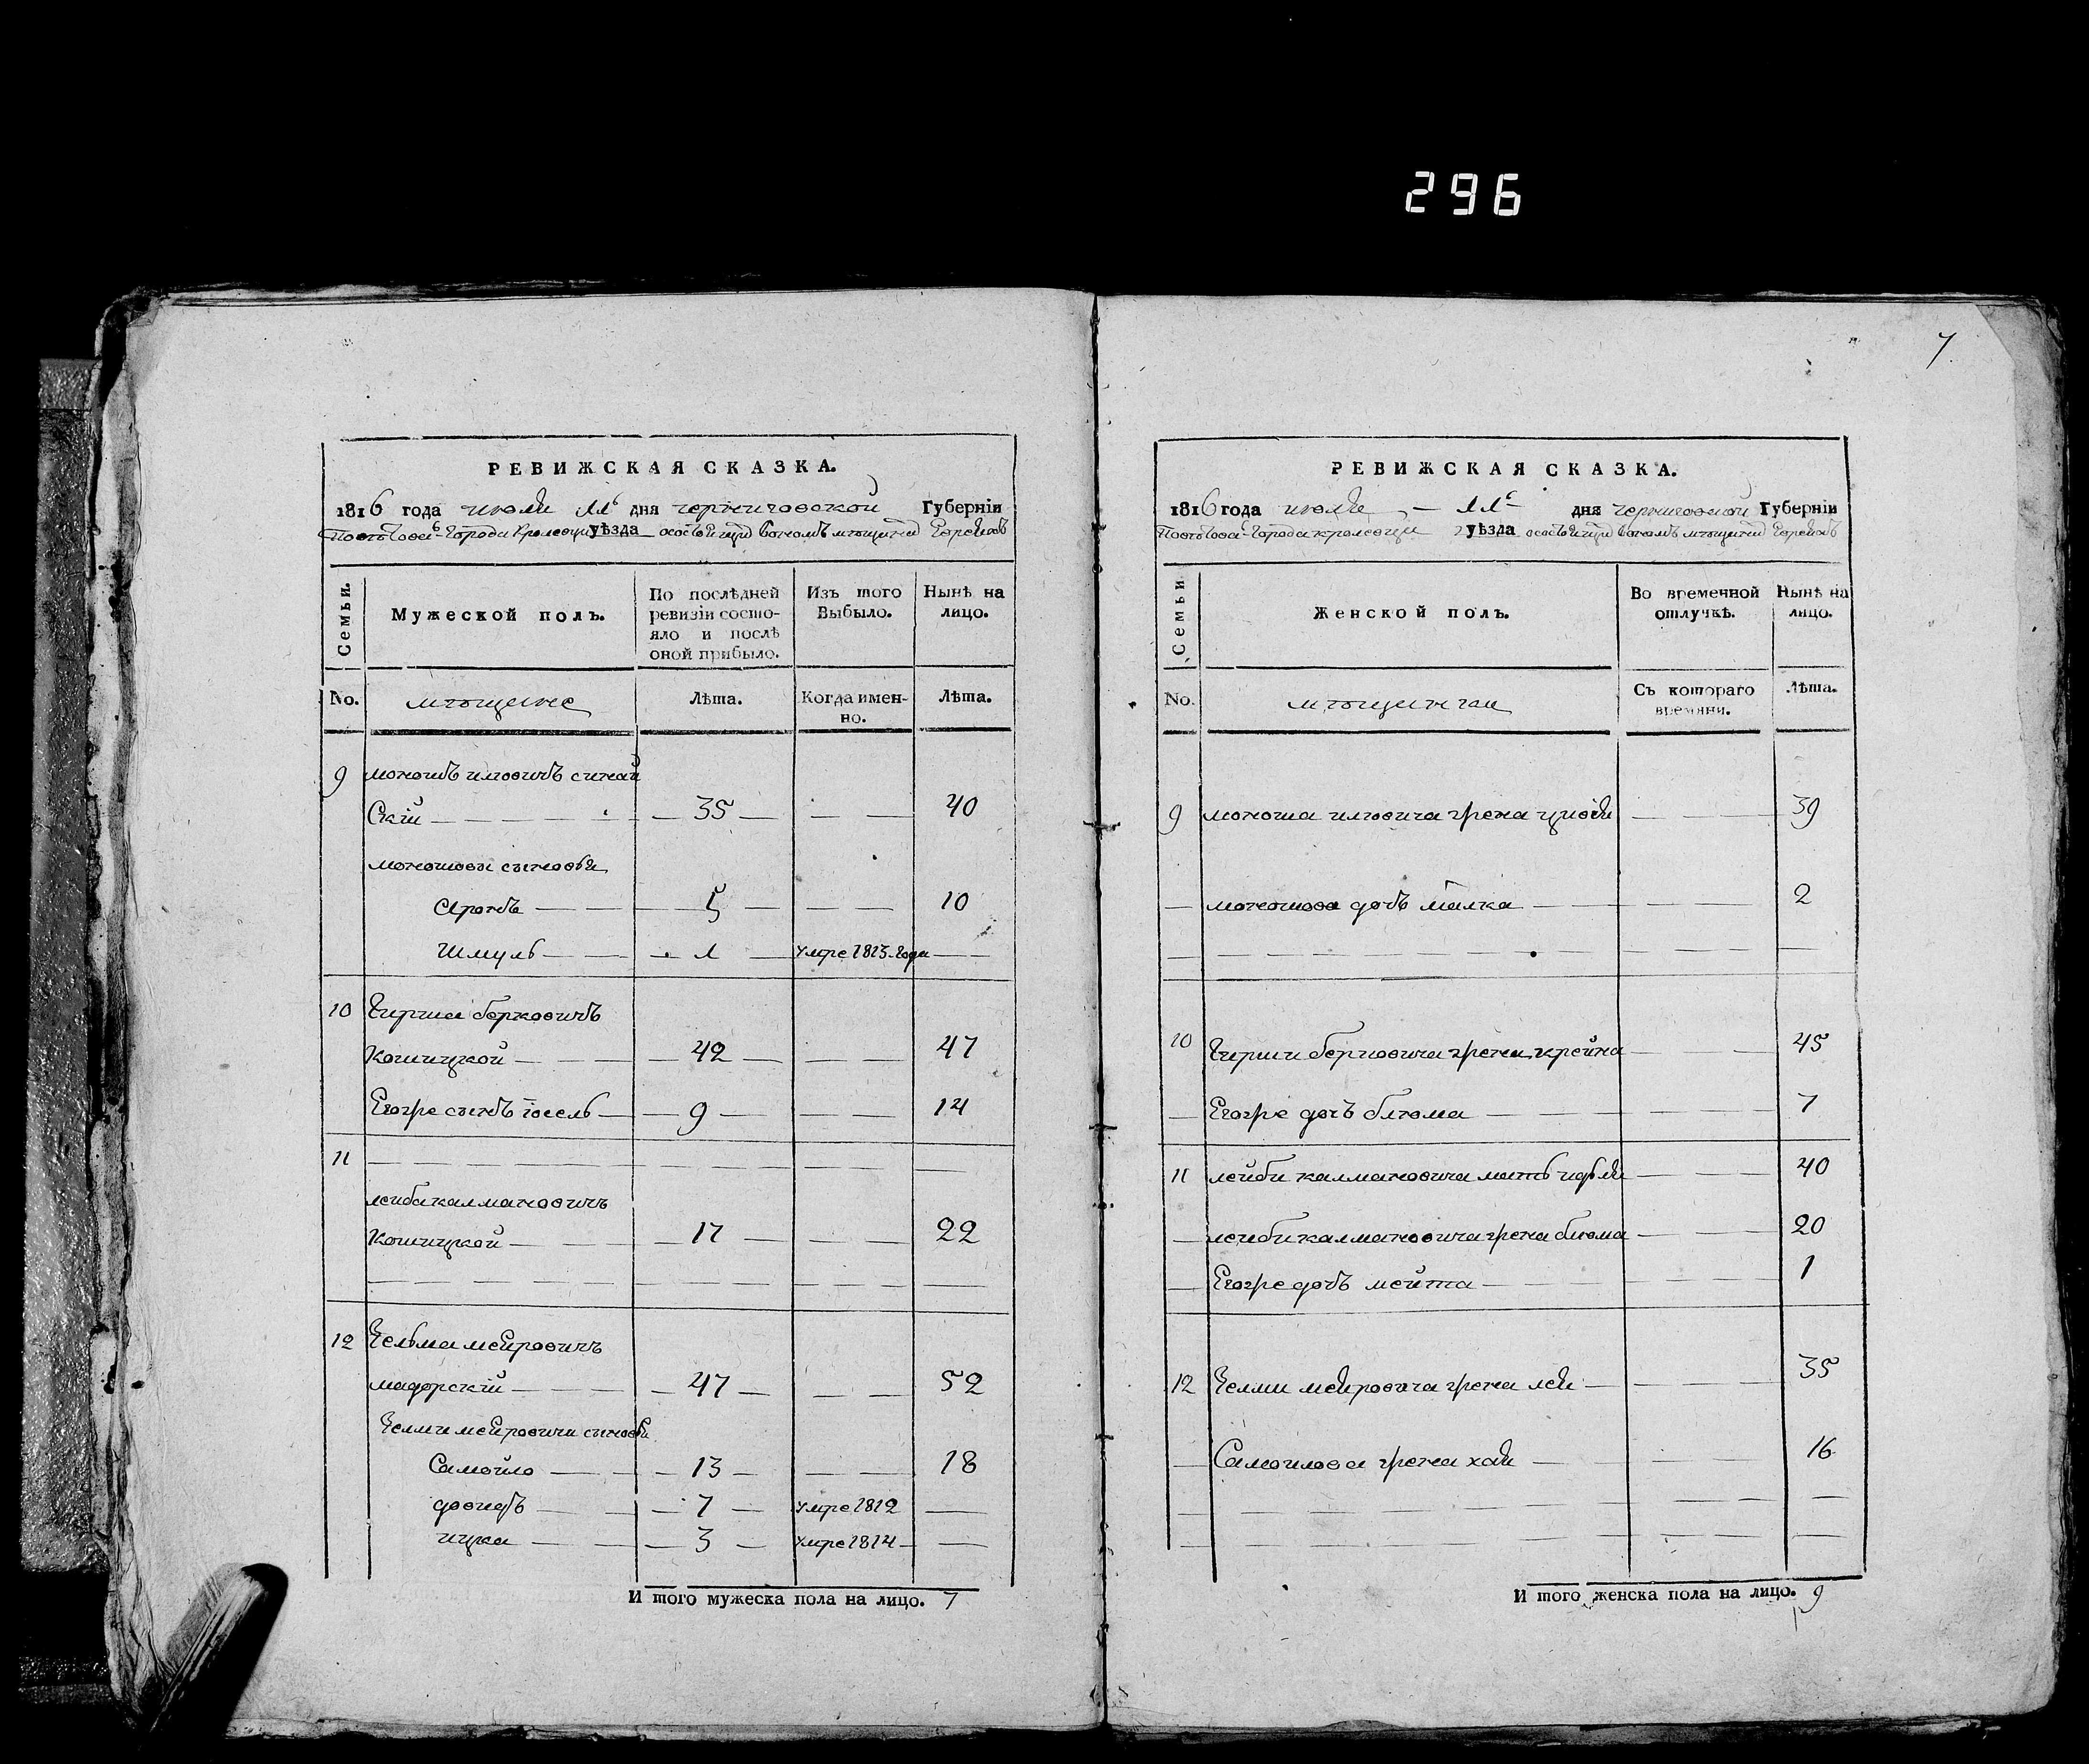 296
РЕВИЖСКАЯ СКАЗКА.
1816 года июля 11 дня черниговской Губерніи
города Кролевца уѣзда о мещанъ Евреяхъ
Семьи.
Мужеской полъ.
По послѣдней ревизіи состояло и послѣ оной прибыло.
Изъ того Выбыло.
Нынѣ на лицо.
No.
мещане
Лѣта.
Когда именно.
Лѣта.
9 синай
скій — 35 — — 40
сыновья
Аронъ — 5 — — 10
Шмуль — 1 — умре 1813 года —
10 Гирша берковичъ
Кошицкой — 42 — — 47
Егоже сынъ іосель — 9 — — 14
11
лейба калмановичъ
Кошицкой — 17 — — 22
12 Зельма мееровичъ
мадорскій — 47 — — 52
мееровича сыновья
Самойло — 13 — — 18
довидъ — 7 — умре 1812 —
ицка — 3 — умре 1814 —
И того мужеска пола на лицо. 7
7.
РЕВИЖСКАЯ СКАЗКА.
1816 года июля — 11 дня черниговской Губерніи
города кролевца уѣзда о мещанъ Евреяхъ
Семьи
Женской полъ.
Во временной отлучкѣ.
Нынѣ на лицо.
No.
мещанки
Съ котораго времяни.
Лѣта.
9 жена — 39
дочь малка — 2
10 Гирши берковича жена крейна — 45
— Егоже дочь блюма — 7
11 лейби калмановича мать — 40
— лейби калмановича жена блюма — 20
— Егоже дочь мейта — 1
12 Зелми мееровича жена лея — 35
— Самойлова жена хая — 16
И того женска пола на лицо. 9